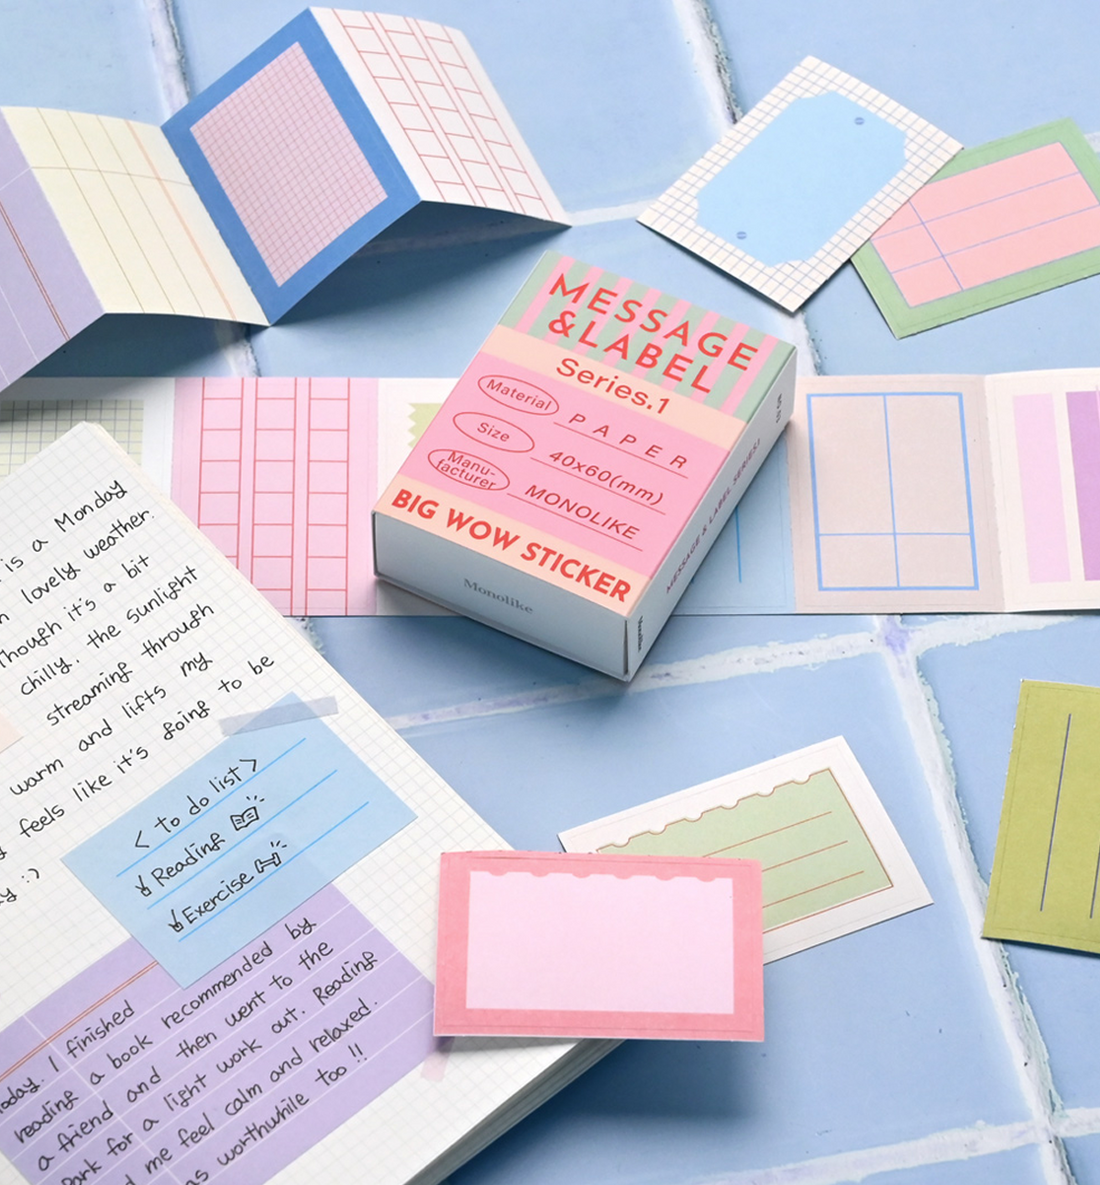 MESSAGE
&LABEL
Series.1
Material PAPER
Size 40x60(mm)
Manu-
facturer MONOLIKE
BIG WOW STICKER
Monolike
MESSAGE & LABEL SERIES.1
is a Monday
lovely weather.
Though it's a bit
chilly, the sunlight
streaming through
warm and lifts my
feels like it's going to be
:)
< to do list >
Reading
Exercise
Today. I finished
reading a book recommended by
a friend and then went to the
park for a light work out. Reading
me feel calm and relaxed.
worthwhile too !!